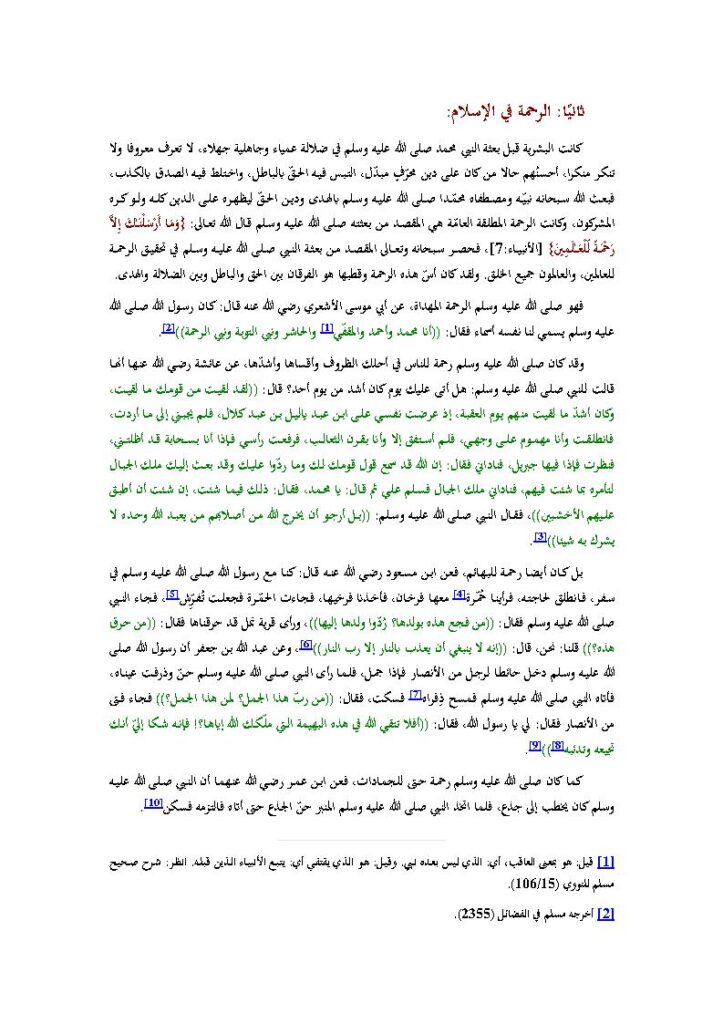 ثانيًا: الرحمة في الإسلام:
كانت البشرية قبل بعثة النبي محمد صلى الله عليه وسلم في ضلالة عمياء وجاهلية جهلاء، لا تعرف معروفا ولا
تنكر منكرا، أحسنُهم حالا من كان على دين محرّفٍ مبدّل، التبس فيه الحقّ بالباطل، واختلط فيه الصدق بالكذب،
فبعث الله سبحانه نبيّه ومصطفاه محمّدا صلى الله عليه وسلم بالهدى ودين الحقّ ليظهره على الدين كله ولو كره
المشركون، وكانت الرحمة المطلقة العامّة هي المقصد من بعثته صلى الله عليه وسلم قال الله تعالى: {وَمَا أَرْسَلْنَـٰكَ إِلاَّ
رَحْمَةً لّلْعَـٰلَمِينَ} [الأنبياء:7]، فحصر سبحانه وتعالى المقصد من بعثة النبي صلى الله عليه وسلم في تحقيق الرحمة
للعالمين، والعالمون جميع الخلق. ولقد كان أسّ هذه الرحمة وقطبها هو الفرقان بين الحق والباطل وبين الضلالة والهدى.
فهو صلى الله عليه وسلم الرحمة المهداة، عن أبي موسى الأشعري رضي الله عنه قال: كان رسول الله صلى الله
عليه وسلم يسمي لنا نفسه أسماء فقال: ((أنا محمد وأحمد والمقفّي[1] والحاشر ونبي التوبة ونبي الرحمة))[2].
وقد كان صلى الله عليه وسلم رحمة للناس في أحلك الظروف وأقساها وأشدّها، عن عائشة رضي الله عنها أنها
قالت للنبي صلى الله عليه وسلم: هل أتى عليك يوم كان أشد من يوم أحد؟ قال: ((لقد لقيت من قومك ما لقيت،
وكان أشدّ ما لقيت منهم يوم العقبة، إذ عرضت نفسي على ابن عبد ياليل بن عبد كلال، فلم يجبني إلى ما أردت،
فانطلقت وأنا مهموم على وجهي، فلم أستفق إلا وأنا بقرن الثعالب، فرفعت رأسي فإذا أنا بسحابة قد أظلتني،
فنظرت فإذا فيها جبريل، فناداني فقال: إن الله قد سمع قول قومك لك وما ردّوا عليك وقد بعث إليك ملك الجبال
لتأمره بما شئت فيهم، فناداني ملك الجبال فسلم علي ثم قال: يا محمد، فقال: ذلك فيما شئت، إن شئت أن أطبق
عليهم الأخشبين))، فقال النبي صلى الله عليه وسلم: ((بل أرجو أن يخرج الله من أصلابهم من يعبد الله وحده لا
يشرك به شيئا))[3].
بل كان أيضا رحمة للبهائم، فعن ابن مسعود رضي الله عنه قال: كنا مع رسول الله صلى الله عليه وسلم في
سفر، فانطلق لحاجته، فرأينا حُمّرة[4] معها فرخان، فأخذنا فرخيها، فجاءت الحمّرة فجعلت تُفرّش[5]، فجاء النبي
صلى الله عليه وسلم فقال: ((من فجع هذه بولدها؟ رُدّوا ولدها إليها))، ورأى قرية نمل قد حرقناها فقال: ((من حرق
هذه؟)) قلنا: نحن، قال: ((إنه لا ينبغي أن يعذب بالنار إلا رب النار))[6]، وعن عبد الله بن جعفر أن رسول الله صلى
الله عليه وسلم دخل حائطا لرجل من الأنصار فإذا جمل، فلما رأى النبي صلى الله عليه وسلم حنّ وذرفت عيناه،
فأتاه النبي صلى الله عليه وسلم فمسح ذِفراه[7] فسكت، فقال: ((من ربّ هذا الجمل؟ لمن هذا الجمل؟)) فجاء فتى
من الأنصار فقال: لي يا رسول الله، فقال: ((أفلا تتقي الله في هذه البهيمة التي ملّكك الله إياها؟! فإنه شكا إليّ أنك
تجيعه وتدئبه[8]))[9].
كما كان صلى الله عليه وسلم رحمة حتى للجمادات، فعن ابن عمر رضي الله عنهما أن النبي صلى الله عليه
وسلم كان يخطب إلى جذع، فلما اتخذ النبي صلى الله عليه وسلم المنبر حنّ الجذع حتى أتاه فالتزمه فسكن[10].
[1] قيل: هو بمعنى العاقب، أي: الذي ليس بعده نبي. وقيل: هو الذي يقتفي أي: يتبع الأنبياء الذين قبله. انظر: شرح صحيح
مسلم للنووي (106/15).
[2] أخرجه مسلم في الفضائل (2355).